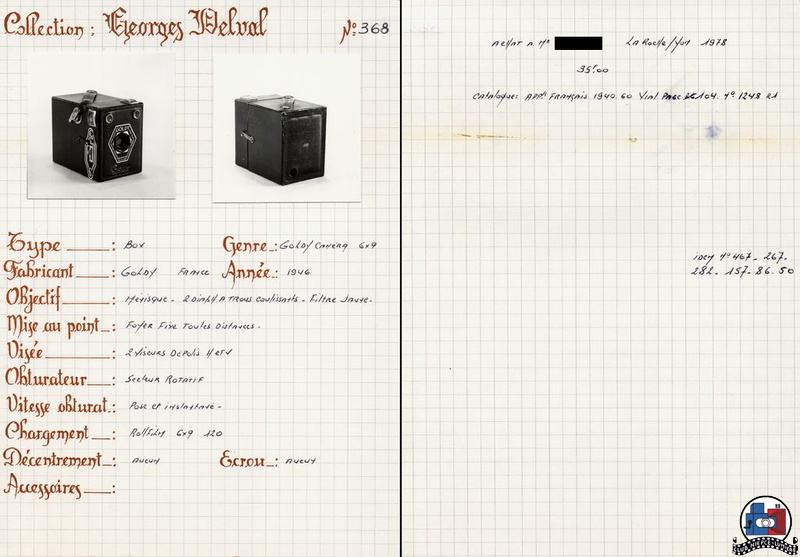 Collection : Georges Delval
N°: 368
Type : Box
Genre : Goldy Camera 6x9
Fabricant : Goldy France
Année : 1946
Objectif : Ménisque - 2 Diaph A Trous Coulissants - Filtre Jaune.
Mise au point : Foyer Fixe Toutes Distances.
Visée : 2 Viseurs Dépolis H et V
Obturateur : Secteur Rotatif
Vitesse obturat : Pose et instantané -
Chargement : Rollfilm 6x9 120
Décentrement : Aucun
Ecrou : Aucun
Accessoires :
Achat A Mr La Roche/Yon 1978
35F.00
Catalogues Appts Français 1940.60 Vial Page 104. N° 1248
idem N° 467 - 267.
282 - 157 - 86. 50